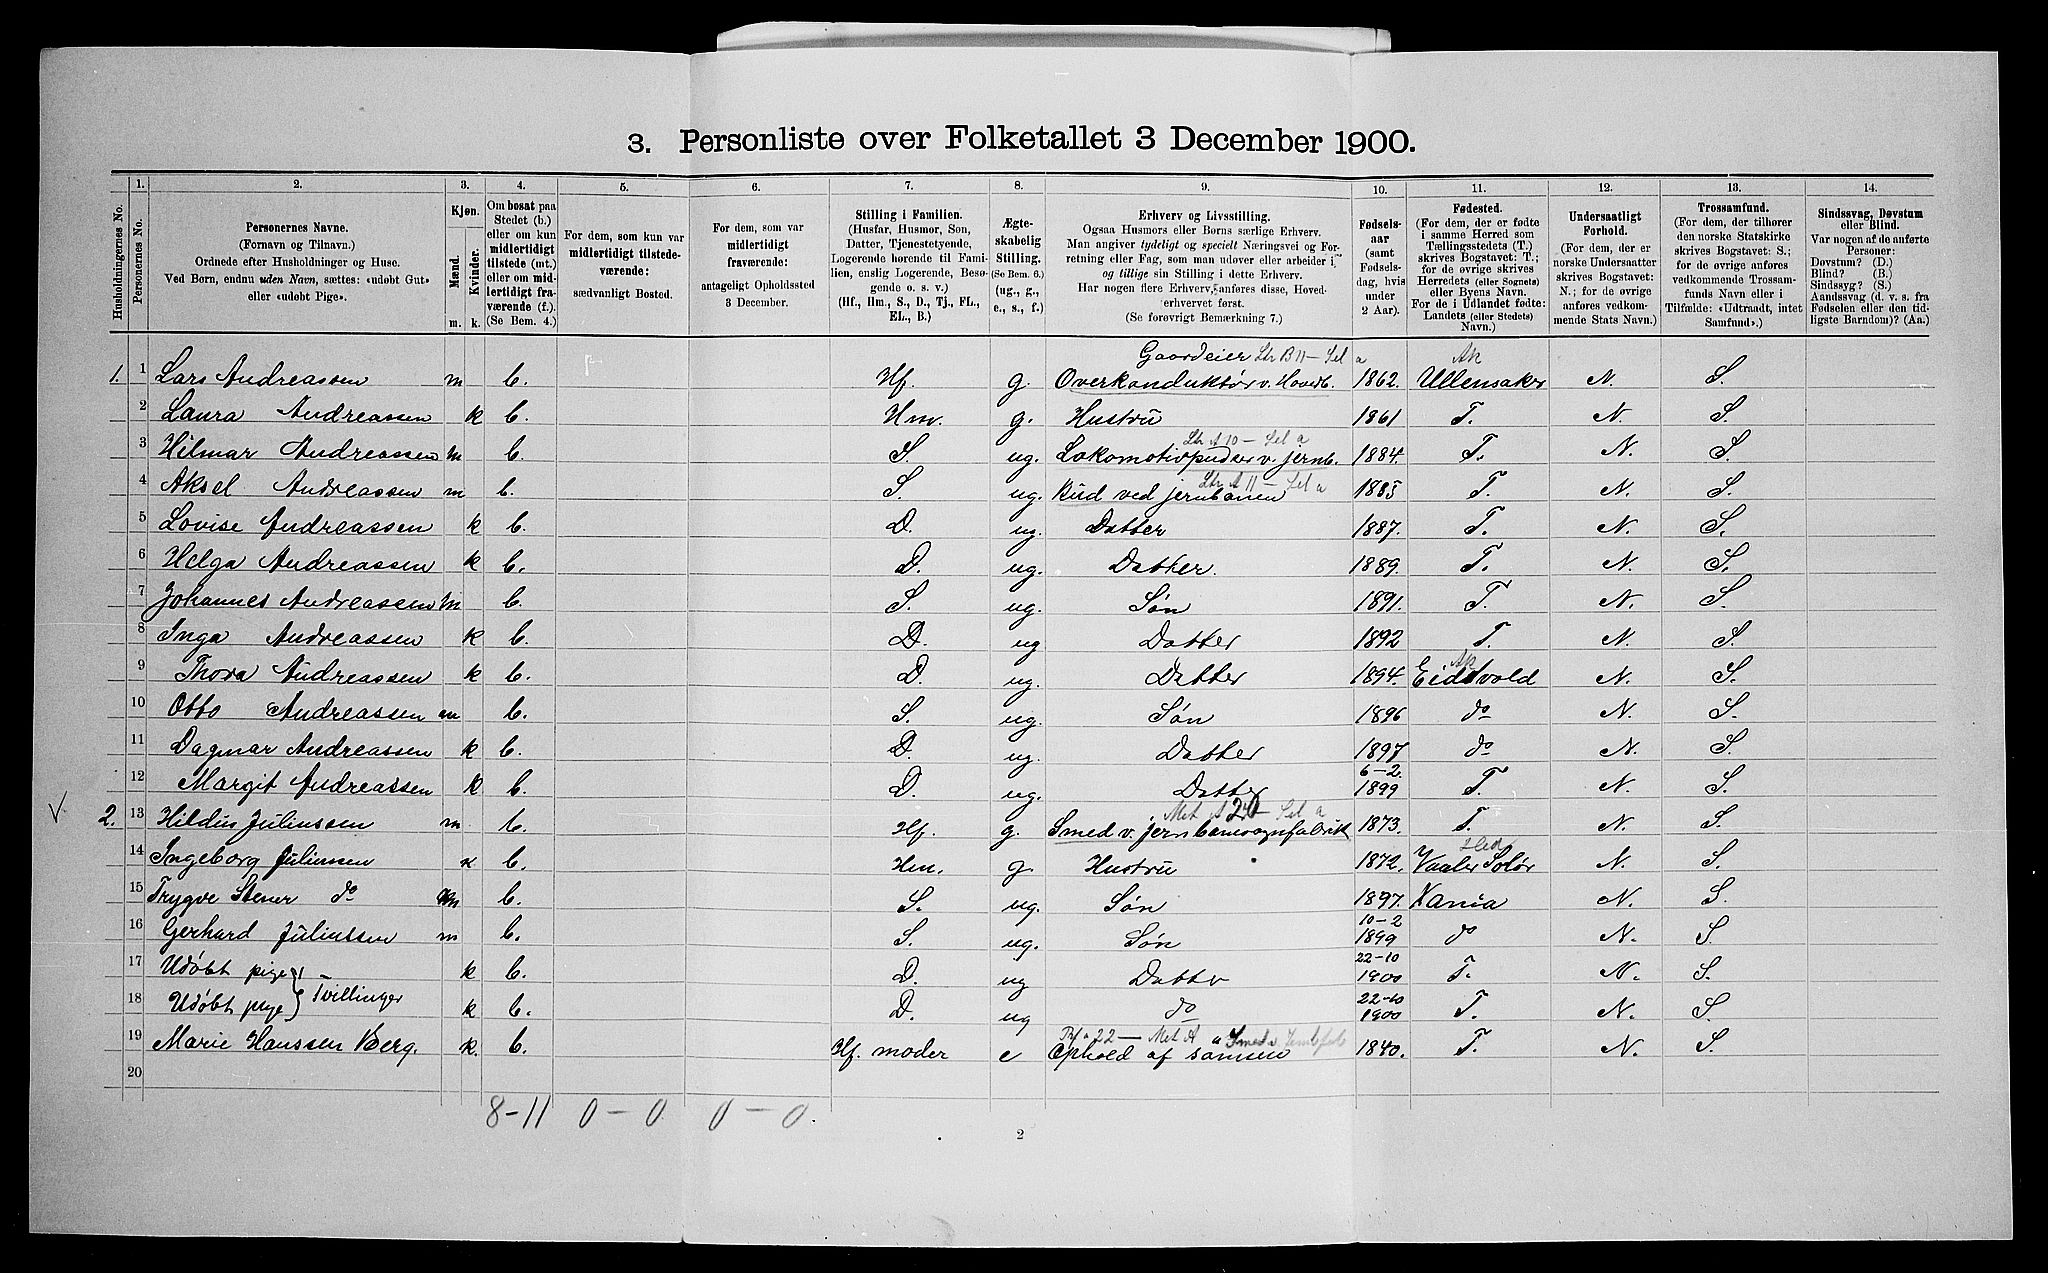 3. Personliste over Folketallet 3 December 1900.
Husholdningernes No.
1. Personernes No.
2. Personernes Navne.
(Fornavn og Tilnavn.)
Ordnede efter Husholdninger og Huse.
Ved Børn, endnu uden Navn, sættes: «udøbt Gut»
eller «udøbt Pige».
3. Kjøn.
Mænd. Kvinder.
m. k.
4. Om bosat paa
Stedet (b.)
eller om kun
midlertidigt
tilstede (mt.)
eller om mid-
lertidigt fra-
værende (f.).
(Se Bem. 4.)
5. For dem, som kun var
midlertidigt tilstede-
værende:
sædvanligt Bosted.
6. For dem, som var
midlertidigt
fraværende:
antageligt Opholdssted
3 December.
7. Stilling i Familien.
(Husfar, Husmor, Søn,
Datter, Tjenestetyende,
Logerende hørende til Fami-
lien, enslig Logerende, Besø-
gende o. s. v.)
(Hf., Hm., S., D., Tj., FL.,
EL., B.)
8. Ægte-
skabelig
Stilling.
(Se Bem. 6.)
(ug., g.,
e., s., f.)
9. Erhverv og Livsstilling.
Ogsaa Husmors eller Børns særlige Erhverv.
Man angiver tydeligt og specielt Næringsvei og For-
retning eller Fag, som man udøver eller arbeider i,
og tillige sin Stilling i dette Erhverv.
Har nogen flere Erhverv, anføres disse, Hoved-
erhvervet først.
(Se forøvrigt Bemærkning 7.)
10. Fødsels-
aar
(samt
Fødsels-
dag, hvis
under
2 Aar).
11. Fødested.
(For dem, der er fødte
i samme Herred som
Tællingsstedets (T.)
skrives Bogstavet: T.;
for de øvrige skrives
Herredets (eller Sognets)
eller Byens Navn.
For de i Udlandet fødte:
Landets (eller Stedets)
Navn.)
12. Undersaatligt
Forhold.
(For dem, der er
norske Undersaatter
skrives Bogstavet:
N.; for de øvrige
anføres vedkom-
mende Stats Navn.)
13. Trossamfund.
(For dem, der tilhører
den norske Statskirke
skrives Bogstavet: S.;
for de øvrige anføres
vedkommende Trossam-
funds Navn eller i
Tilfælde: «Udtraadt, intet
Samfund».)
14. Sindssvag, Døvstum
eller Blind.
Var nogen af de anførte
Personer:
Døvstum? (D.)
Blind? (B.)
Sindssyg? (S.)
Aandssvag (d. v. s. fra
Fødselen eller den tid-
ligste Barndom)? (Aa.)
Gaardeier Str B 11 – Sel a Ak
1. 1 Lars Andreassen m b. Hf. g. Overkonduktør v. Hovedb. 1862. Ullensaker N. S.
2 Laura Andreassen k b. Hm. g. Hustru 1861 T. N. S.
Str A 10 – Sel a
3 Hilmar Andreassen m b. S ug. Lokomotivpudser v. jernb. 1884. T. N. S.
Str A 11 – Sel a
4 Aksel Andreassen m b. S. ug. Bud ved jernbanen 1885 T. N. S.
5 Lovise Andreassen k b. D. ug. Datter 1887. T. N. S.
6 Helga Andreassen k b. D. ug. Datter. 1889. T. N. S.
7 Johannes Andreassen m b. S. ug. Søn 1891. T. N. S.
8 Inga Andreassen k b. D. ug Datter 1892 T. N. S.
Ak
9 Thora Andreassen k b. D. ug. Datter 1894. Eidsvold N. S.
10 Otto Andreassen m b. S. ug. Søn 1896 do N. S.
11 Dagmar Andreassen k b. D. ug. Datter 1897 do N. S.
12 Margit Andreassen k b. D. ug. Datter 6–2. 1899 T. N. S.
V. Met A 20 Sel a
2. 13 Hildus Juliussen m. b. Hf. g. Smed v. jernbanevognfabrik 1873. T. N. S.
Hed
14 Ingeborg Juliussen k b. Hm. g. Hustru 1872. Vaaler Solør N. S.
15 Trygve Stener do m b. S. ug. Søn 1897. Kania N. S.
16 Gerhard Juliussen m b. S. ug. Søn 10–2 1899 do N. S.
17 Udøbt pige } Tvillinger k b. D. ug Datter 22–10 1900 T. N. S.
18 Udøbt pige k b. D. ug do 22–10 1900 T. N. S.
22 – Met A Smed
19 Marie Hanssen Berg. k. b. Hf. moder e Ophold af sønnen 1840. T. N. S.
20
8–11 0–0 0–0.
2